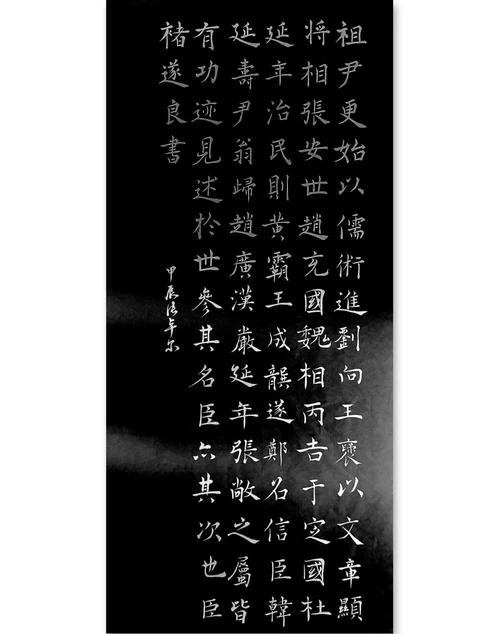 祖尹更始以儒術進劉向王襃以文章顯
将相張安世趙充國魏相丙吉于定國杜
延年治民則黄霸王成龔遂鄭名信臣韓
延壽尹翁歸趙廣漢嚴延年張敞之屬皆
有功迹見述於世參其名臣亦其次也臣
褚遂良書
甲辰